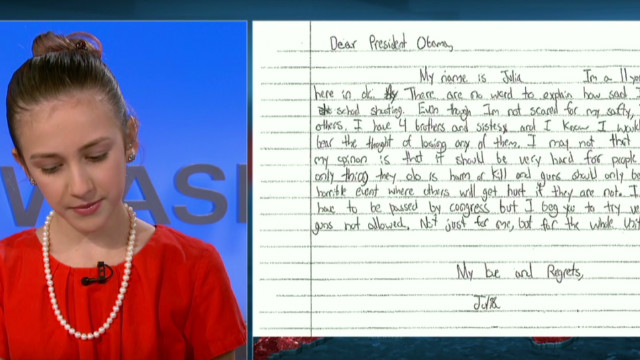 WASH
Dear President Obama,
My name is Julia Im a 11 yea
here in dc. There are no word to explain how sad I
school shouting. Even though Im not scared for my safty,
others. I have 4 brothers and sistess, and I know I would
bear the thought of losing any of them. I may not that
my opinion is that it should be very hard for people
only thing they do is harm or kill and guns should only be
horrible event where others will get hurt if they are not. I
have to be passed by congress but I beg you to try ve
guns not allowed. Not just for me, but for the whole Unit
My be and Regrets,
Julia